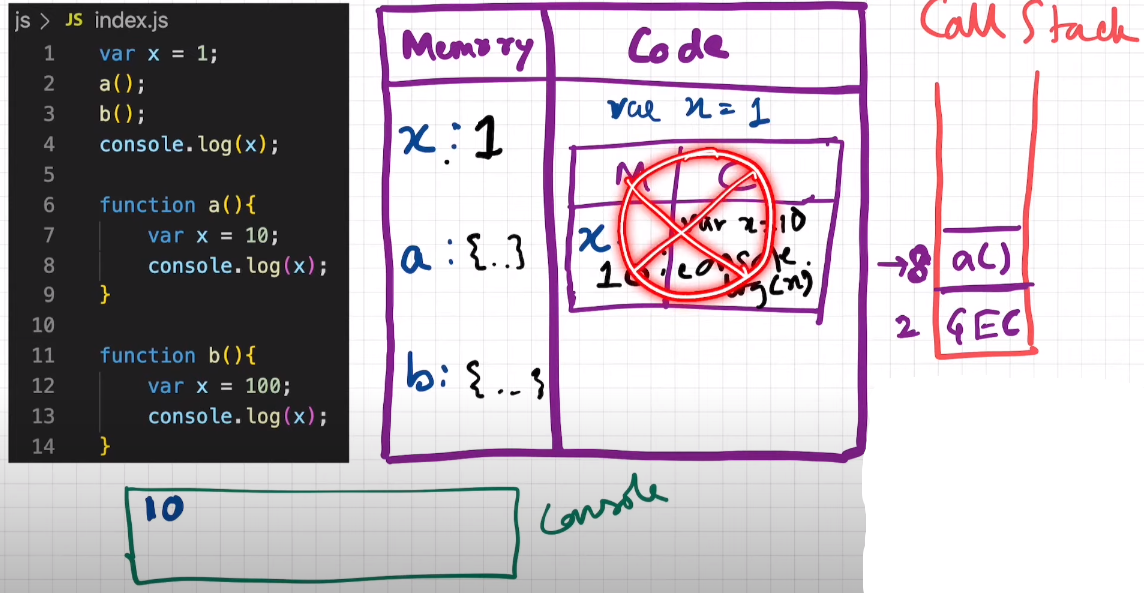 js > JS index.js
1 var x = 1;
2 a();
3 b();
4 console.log(x);
5
6 function a(){
7 var x = 10;
8 console.log(x);
9 }
10
11 function b(){
12 var x = 100;
13 console.log(x);
14 }
Memory
Code
x : 1
a : {..}
b: {...}
var x = 1
M
C
x
10
var x=10
console.
log(x)
Call Stack
→8 a()
2 GEC
10
Console